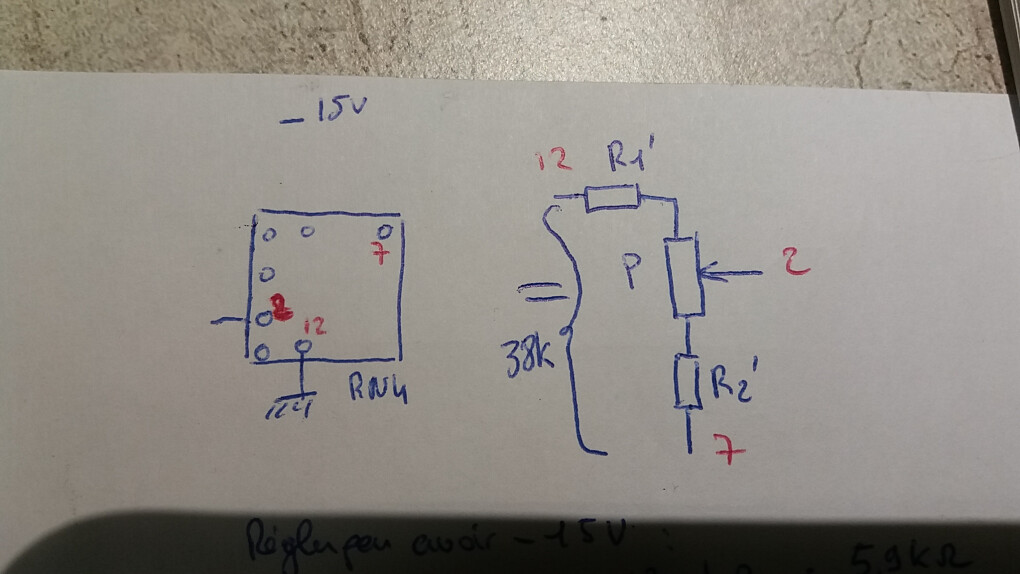 - 15V
12 R1'
7
P 2
2
12
38k
RN4
R2'
7
Régler pour avoir - 15V :
5,9kΩ